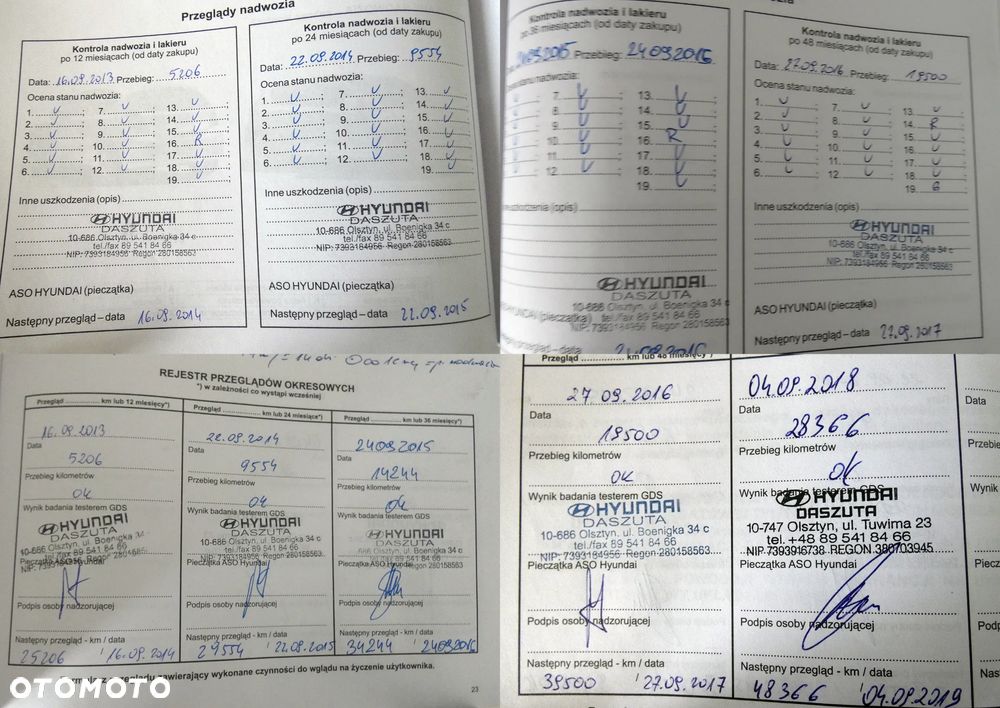 Przeglądy nadwozia
Kontrola nadwozia i lakieru
po 12 miesiącach (od daty zakupu)
Data: 16.09.2013 Przebieg: 5206
Ocena stanu nadwozia:
1. V ; 7. V ; 13. V ;
2. V ; 8. V ; 14. V ;
3. V ; 9. V ; 15. V ;
4. V ; 10. V ; 16. R ;
5. V ; 11. V ; 17. V ;
6. V ; 12. V ; 18. V ;
19. V ;
Inne uszkodzenia (opis)
HYUNDAI
DASZUTA
10-686 Olsztyn, ul. Boenigka 34 c
tel./fax 89 541 84 66
NIP: 7393184956 Regon 280158563
ASO HYUNDAI (pieczątka)
Następny przegląd – data 16.09.2014
Kontrola nadwozia i lakieru
po 24 miesiącach (od daty zakupu)
Data: 22.09.2014 Przebieg: 9554
Ocena stanu nadwozia:
1. V ; 7. V ; 13. V ;
2. V ; 8. V ; 14. V ;
3. V ; 9. V ; 15. V ;
4. V ; 10. V ; 16. V ;
5. V ; 11. V ; 17. V ;
6. V ; 12. V ; 18. V ;
19. V ;
Inne uszkodzenia (opis)
HYUNDAI
DASZUTA
10-686 Olsztyn, ul. Boenigka 34 c
tel./fax 89 541 84 66
NIP: 7393184956 Regon 280158563
ASO HYUNDAI (pieczątka)
Następny przegląd – data 22.09.2015
Kontrola nadwozia i lakieru
po 36 miesiącach (od daty zakupu)
2409.2015 Przebieg: 24092015
stanu nadwozia:
7. V ; 13. V ;
8. V ; 14. V ;
9. V ; 15. V ;
10. V ; 16. R ;
11. V ; 17. V ;
12. V ; 18. V ;
19. V ;
uszkodzenia (opis)
HYUNDAI
DASZUTA
10-686 Olsztyn, ul. Boenigka 34 c
tel./fax 89 541 84 66
NIP: 7393184956 Regon 280158563
(pieczątka)
przegląd – data
Kontrola nadwozia i lakieru
po 48 miesiącach (od daty zakupu)
Data: 27.09.2016 Przebieg: 19500
Ocena stanu nadwozia:
1. V ; 7. V ; 13. V ;
2. V ; 8. V ; 14. R ;
3. V ; 9. V ; 15. V ;
4. V ; 10. V ; 16. V ;
5. V ; 11. V ; 17. V ;
6. V ; 12. V ; 18. V ;
19. G ;
Inne uszkodzenia (opis)
HYUNDAI
DASZUTA
10-686 Olsztyn, ul. Boenigka 34 c
tel./fax 89 541 84 66
NIP: 7393184956 Regon 280158563
ASO HYUNDAI (pieczątka)
Następny przegląd – data 27.09.2017
REJESTR PRZEGLĄDÓW OKRESOWYCH
*) w zależności co wystąpi wcześniej
Przegląd km lub 12 miesięcy*)
16.09.2013
Data
5206
Przebieg kilometrów
OK
Wynik badania testerem GDS
HYUNDAI
DASZUTA
10-686 Olsztyn, ul. Boenigka
tel./fax 89 541 84 66
NIP: 7393184956 Regon 280158563
Pieczątka ASO Hyundai
Podpis osoby nadzorującej
Następny przegląd - km / data
25206 16.09.2014
Przegląd km lub 24 miesiące*)
22.09.2014
Data
9554
Przebieg kilometrów
OK
Wynik badania testerem GDS
HYUNDAI
DASZUTA
10-686 Olsztyn, ul. Boenigka 34 c
tel./fax 89 541 84 66
NIP: 7393184956 Regon 280158563
Pieczątka ASO Hyundai
Podpis osoby nadzorującej
Następny przegląd - km / data
29554 22.09.2015
Przegląd km lub 36 miesięcy*)
24092015
Data
14244
Przebieg kilometrów
OK
Wynik badania testerem GDS
HYUNDAI
DASZUTA
10-686 Olsztyn, ul. Boenigka 34 c
tel./fax 89 541 84 66
NIP: 7393184956 Regon 280158563
Pieczątka ASO Hyundai
Podpis osoby nadzorującej
Następny przegląd - km / data
34244 24092016
zawierający wykonane czynności do wglądu na życzenie użytkownika.
23
Przegląd km lub 48 miesięcy*)
27 09.2016
Data
19500
Przebieg kilometrów
OK
Wynik badania testerem GDS
HYUNDAI
DASZUTA
10-686 Olsztyn, ul. Boenigka 34 c
tel./fax 89 541 84 66
NIP: 7393184956 Regon 280158563
Pieczątka ASO Hyundai
Podpis osoby nadzorującej
Następny przegląd - km / data
39500 27.09.2017
04.09.2018
Data
28366
Przebieg kilometrów
OK
Wynik badania testerem GDS
HYUNDAI
DASZUTA
10-747 Olsztyn, ul. Tuwima 23
tel. +48 89 541 84 66
NIP 7393916738 REGON 380703945
Pieczątka ASO Hyundai
Podpis osoby nadzorującej
Następny przegląd - km / data
48366 04.09.2019
Data
Przebie
Wynik
Pieczą
Podp
Nas
OTOMOTO